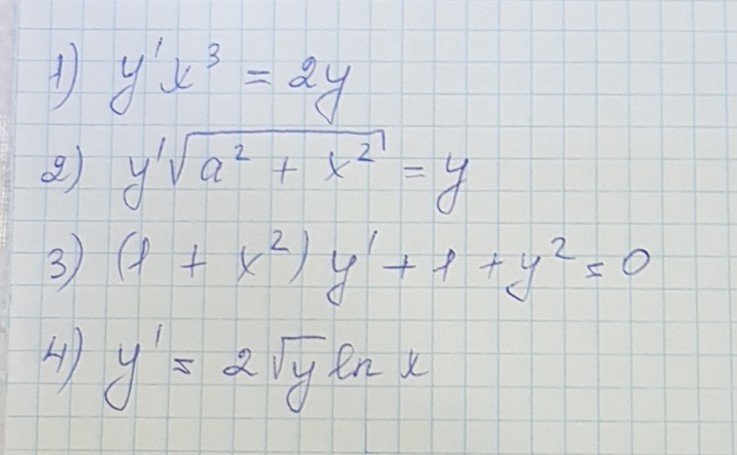 1) y'x³ = 2y
2) y'√(a² + x²) = y
3) (1 + x²) y' + 1 + y² = 0
4) y' = 2√y ln x